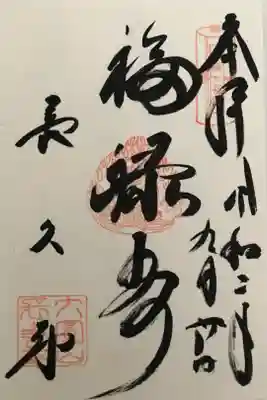 奉拝
令和二年
九月廿一日
福禄寿
長久寺